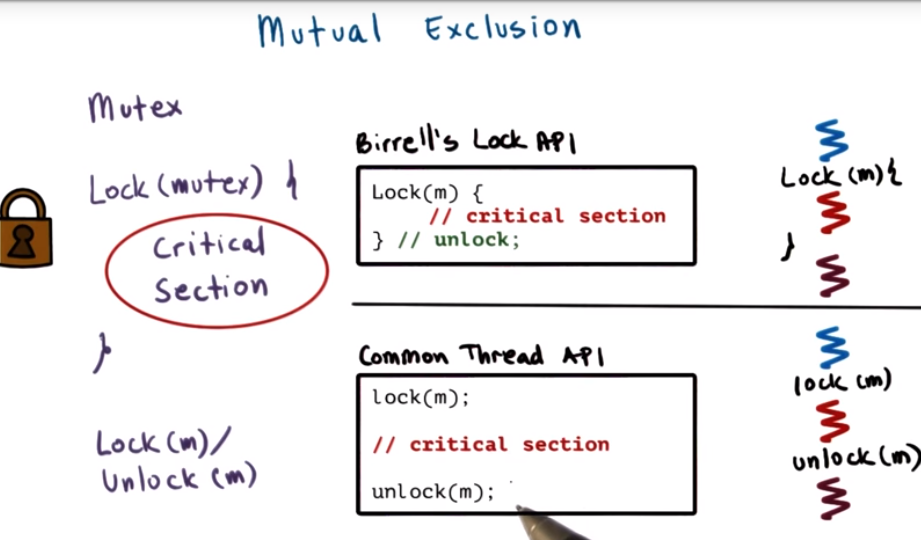 Mutual Exclusion
Mutex
Lock (mutex) {
Critical
Section
}
Lock (m) /
Unlock (m)
Birrell's Lock API
Lock(m) {
// critical section
} // unlock;
Common Thread API
lock(m);
// critical section
unlock(m);
Lock (m) {
}
lock (m)
unlock (m)